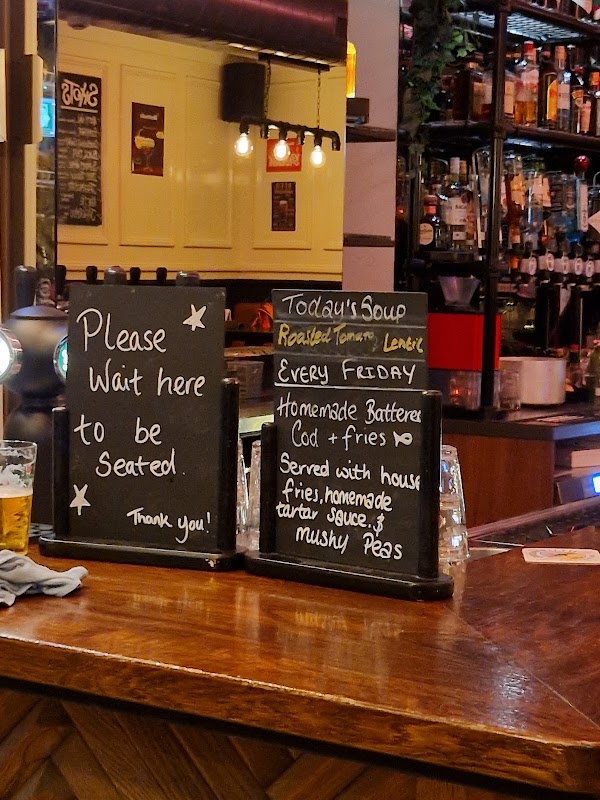 Please
Wait here
to be
Seated.
Thank you!
Today's Soup
Roasted Tomato, Lentil
EVERY FRIDAY
Homemade Battered
Cod + fries
Served with house
fries, homemade
tartar sauce, &
mushy Peas